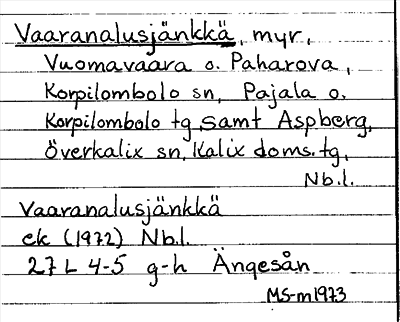 Vaaranalusjänkkä, myr,
Vuomavaara o. Paharova,
Korpilombolo sn, Pajala o.
Korpilombolo tg samt Aspberg,
Överkalix sn, Kalix doms. tg,
Nb.l.
Vaaranalusjänkkä
ek (1972) Nb.l.
27 L 4-5 g-h Ängesån
MS-m 1973